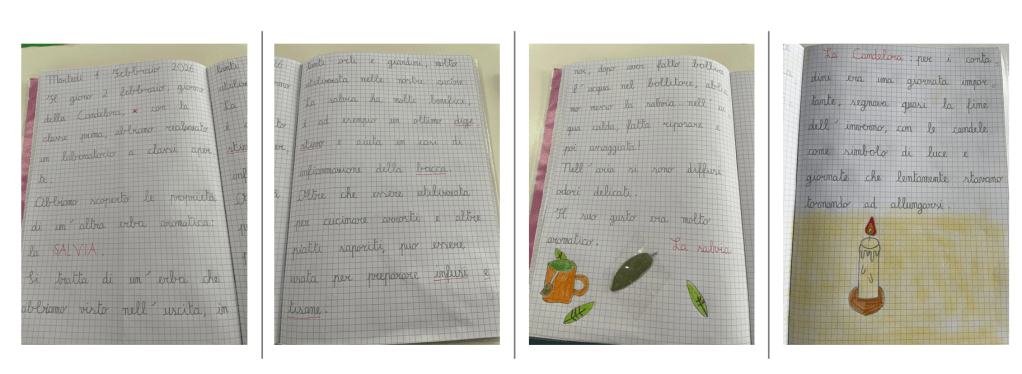 Martedì 4 Febbraio 2026
Il giono 2 febbraio, giorno
della Candelora, * con la
classe prima, abbiamo realizzato
un laboratorio a classi aper
te.
Abbiamo scoperto le proprietà
di un'altra erba aromatica:
la SALVIA.
Si tratta di un'erba che
abbiamo visto nell'uscita, in
tanti orti e giardini, molto
utilizzata nelle nostre cucine.
La salvia ha molti benefici,
è ad esempio un ottimo dige
stivo e aiuta in casi di
infiammazione della bocca.
Oltre che essere utilizzata
per cucinare arrosti e altre
piatti saporiti, può essere
usata per preparare infusi e
tisane.
noi, dopo aver fatto bollire
l'acqua nel bollitore, abbia
mo messo la salvia nell'ac
qua calda, fatta riposare e
poi assaggiata!
Nell'aria si sono diffusi
odori delicati.
Il suo gusto era molto
aromatico.
La salvia
La Candelora per i conta
dini era una giornata impor
tante, segnava quasi la fine
dell'inverno, con le candele
come simbolo di luce e
giornate che lentamente stavano
tornando ad allungarsi.